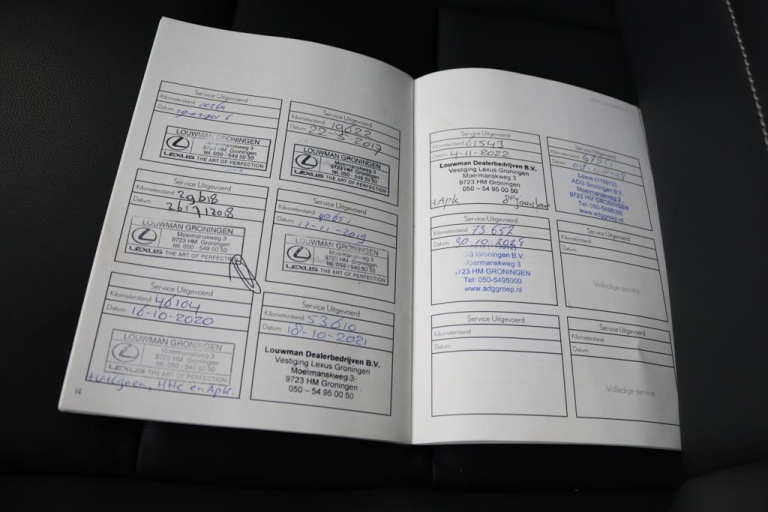 Service Uitgevoerd
Kilometerstand:
Datum:
LOUWMAN GRONINGEN
Moermanskweg 3
9723 HM Groningen
tel. 050 - 549 50 50
LEXUS THE ART OF PERFECTION
Service Uitgevoerd
Kilometerstand: 19622
Datum: 2017
LOUWMAN GRONINGEN
Moermanskweg 3
9723 HM Groningen
tel. 050 - 549 50 50
LEXUS THE ART OF PERFECTION
Service Uitgevoerd
Kilometerstand: 29618
Datum:
LOUWMAN GRONINGEN
Moermanskweg 3
9723 HM Groningen
tel. 050 - 549 50 50
LEXUS THE ART OF PERFECTION
Service Uitgevoerd
Kilometerstand:
Datum: 2019
LOUWMAN GRONINGEN
Moermanskweg 3
9723 HM Groningen
tel. 050 - 549 50 50
LEXUS THE ART OF PERFECTION
Service Uitgevoerd
Kilometerstand: 46104
Datum: 16-10-2020
LOUWMAN GRONINGEN
Moermanskweg 3
9723 HM Groningen
tel. 050 - 549 50 50
LEXUS THE ART OF PERFECTION
HHC en Apk.
Service Uitgevoerd
Kilometerstand: 53610
Datum: 18-10-2021
Louwman Dealerbedrijven B.V.
Vestiging Lexus Groningen
Moermanskweg 3
9723 HM Groningen
050 - 54 95 00 50
14
Service Uitgevoerd
Kilometerstand: 61543
Datum: 4-11-2022
Louwman Dealerbedrijven B.V.
Vestiging Lexus Groningen
Moermanskweg 3
9723 HM Groningen
050 - 54 95 00 50
+Apk
Service Uitgevoerd
Kilometerstand:
Datum:
ADG Groningen B.V.
Moermanskweg 3
9723 HM GRONINGEN
Tel: 050-5495050
www.adggroep.nl
Service Uitgevoerd
Kilometerstand: 73.652
Datum: 30.10.2024
Moermanskweg 3
9723 HM GRONINGEN
Tel: 050-5495000
www.adggroep.nl
Service Uitgevoerd
Kilometerstand:
Datum:
Volledige service
Service Uitgevoerd
Kilometerstand:
Datum:
Service Uitgevoerd
Kilometerstand:
Datum:
Volledige service